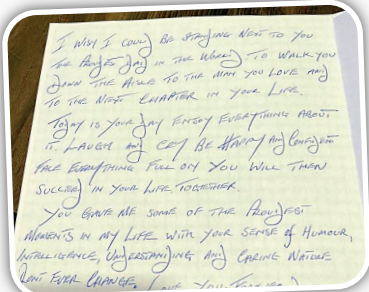 I WISH I COULD BE STANDING NEXT TO YOU
THE PROUDEST DAD IN THE WORLD TO WALK YOU
DOWN THE AISLE TO THE MAN YOU LOVE AND
TO THE NEXT CHAPTER IN YOUR LIFE.
TODAY IS YOUR DAY ENJOY EVERYTHING ABOUT
IT. LAUGH AND CRY BE HAPPY AND CONFIDENT
FACE EVERYTHING FULL ON YOU WILL THEN
SUCCEED IN YOUR LIFE TOGETHER.
YOU GAVE ME SOME OF THE PROUDEST
MOMENTS IN MY LIFE WITH YOUR SENSE of HUMOUR,
INTELLIGENCE, UNDERSTANDING AND CARING NATURE
DONT EVER CHANGE. LOVE YOU FOREVER